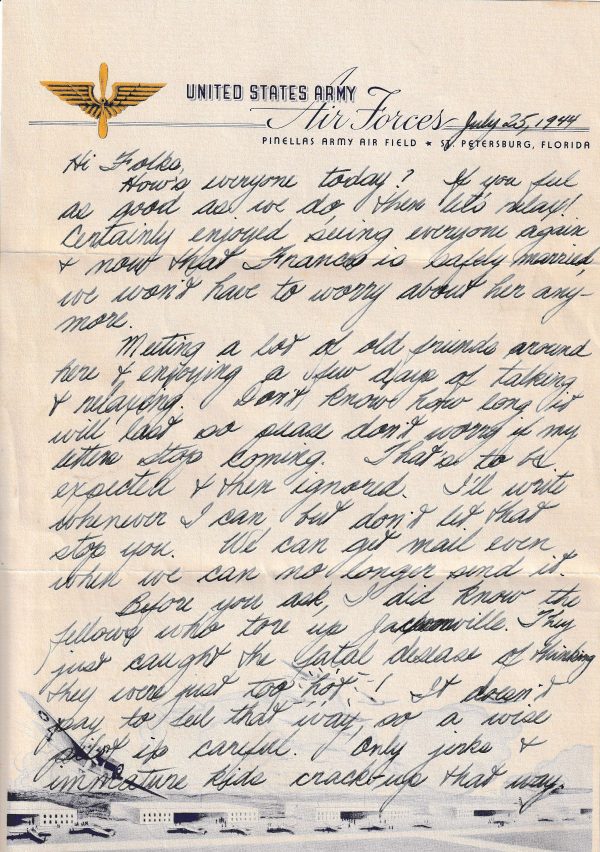 UNITED STATES ARMY
Air Forces July 25, 1944
PINELLAS ARMY AIR FIELD ★ ST. PETERSBURG, FLORIDA
Hi Folks,
How's everyone today? If you feel
as good as we do, then let's relay!
Certainly enjoyed seeing everyone again
& now that Frances is safely married,
we won't have to worry about her any-
more.
Meeting a lot of old friends around
here & enjoying a few days of talking
& relaxing. Don't know how long it
will last so please don't worry if my
letters stop coming. That's to be
expected & then ignored. I'll write
whenever I can, but don't let that
stop you. We can get mail even
when we can no longer send it.
Before you ask, I did know the
fellows who tore up Jacksonville. They
just caught the fatal disease of thinking
they were just too "hot"! It doesn't
pay to feel that way, so a wise
pilot is careful. Only jerks &
immature kids crack-up that way.